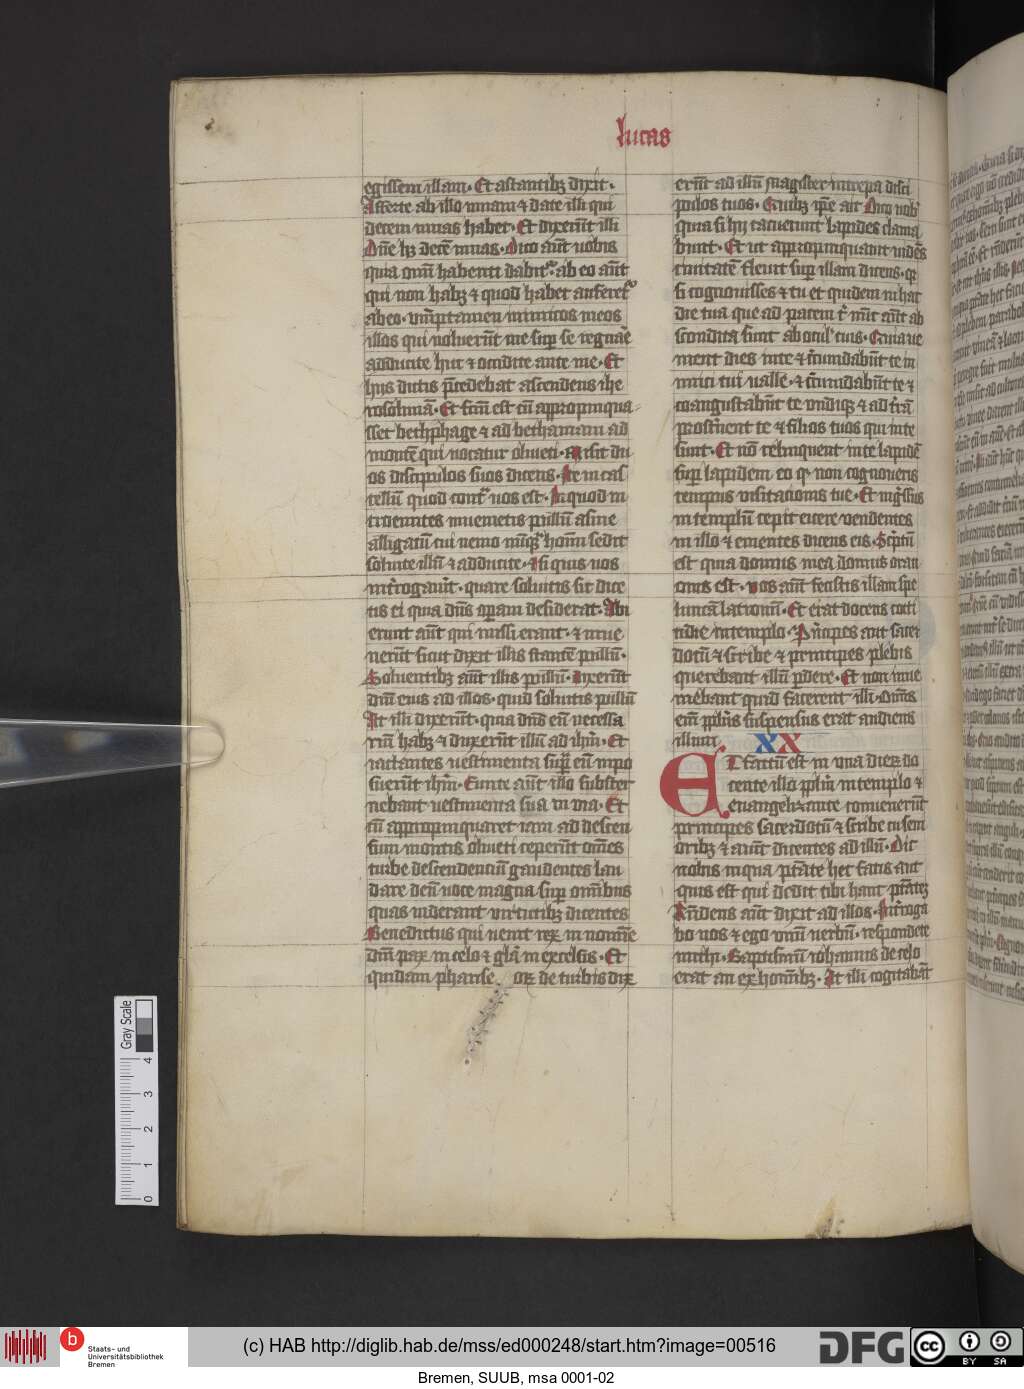 lucas
egissem illam. Et astantibꝫ dixit.
Afferte ab illo mnam ⁊ date illi qui
decem mnas habet. Et dixerūt illi
Dn̄e hꝫ decē mnas. Dico aūt uobis
quia omī habenti dabit᷑. ab eo aūt
qui non habꝫ ⁊ quod habet auferet᷑
ab eo. vm̄ptamen inimicos meos
illos qui noluerūt me suꝑ se regnāe
adducite huc ⁊ occidite ante me. Et
hijs dictis p̄cedebat ascendens ihe
rosolimā. Et fcm̄ est cū appropinqua
sset bethphage ⁊ ad bethaniam ad
montē qui uocatur oliueti. Misit du
os discipulos suos dicens. Ite in cas
tellū quod cont᷑ uos est. In quod in
troeuntes inuenietis pullū asine
alligatū cui nemo nūq᷑ hoīm sedit
soluite illū ⁊ adducite. Et si quis uos
int̄rogauīt. quare soluitis sic dice
tis ei quia dn̄s oꝑam desiderat. Abi
erunt aūt qui missi erant. ⁊ inue
nerūt sicut dixit illis stantē pullū.
Soluentibꝫ aūt illis pullū. dixerūt
dn̄i eius ad illos. quid soluitis pullū
At illi dixerūt. quia dn̄s eū necessa
riū habꝫ ⁊ duxerūt illū ad ihm̄. Et
iactantes uestimenta suꝑ eū inpo
suerūt ihm̄. Eunte aūt illo subster
nebant uestimenta sua in uia. Et
cū appropinquaret iam ad descen
sum montis oliueti ceperūt om̄es
turbe descendenciū gaudentes lau
dare deū uoce magna suꝑ omībus
quas uiderant uirtutibꝫ dicentes
Benedictus qui uenit rex in nomīe
dn̄i pax in celo ⁊ gl̄a in excelsis. Et
quidam pharise oꝝ de turbis dix̄
erūt ad illū magister increpa disci
pulos tuos. Quibꝫ ip̄e ait Dico uob᷑
quia si hij tacuerint lapides clama
bunt. Et ut appropinquauit uidēs
ciuitatē fleuit suꝑ illam dicens. qꝛ
si cognouisses ⁊ tu et quidem in hac
die tua que ad pacem t᷑ nūc aūt ab
scondita sunt ab ocul᷑ tuis. Quia ue
nient dies in te ⁊ c̄cundabūt te in
imici tui ualle. ⁊ c̄cundabūt te ⁊
coangustabūt te vndiqꝫ ⁊ ad t̄rā
prost̄nent te ⁊ filios tuos qui in te
sunt. Et nō relinquent in te lapidē
suꝑ lapidem eo qꝛ non cognoueris
tempus visitacionis tue. Et inḡssus
in templū cepit eicere vendentes
in illo ⁊ ementes dicens eis. Sc̄ptū
est quia domus mea domus oraci
onis est. vos aūt fecistis illam spe
luncā latronū. Et erat docens coti
die in templo. P̄ncipes aut sacer
dotū ⁊ scribe ⁊ principes plebis
querebant illū ꝑdere. Et non inue
niebant quid facerent illi. Om̄is
eīm pp̄lus suspensus erat audiens
illum. XX
ET factū est in una dieꝝ do
cente illo pp̄lm̄ in templo ⁊
euangelizante conuenerūt
principes sacerdotū ⁊ scribe cū seni
oribꝫ ⁊ aiūt dicentes ad illū. Dic
nobis in qua p̄tāte hec facis aut
quis est qui dedit tibi hanc p̄tāteꝫ
Rn̄dens aūt dixit ad illos. Int̄roga
bo uos ⁊ ego vnū verbū. respondete
michi. Baptismū iohannis de celo
erat an ex hoībꝫ. At illi cogitabāt
Gray Scale
0 1 2 3 4
b
Staats- und
Universitätsbibliothek
Bremen
(c) HAB http://diglib.hab.de/mss/ed000248/start.htm?image=00516
DFG
cc BY SA
Bremen, SUUB, msa 0001-02